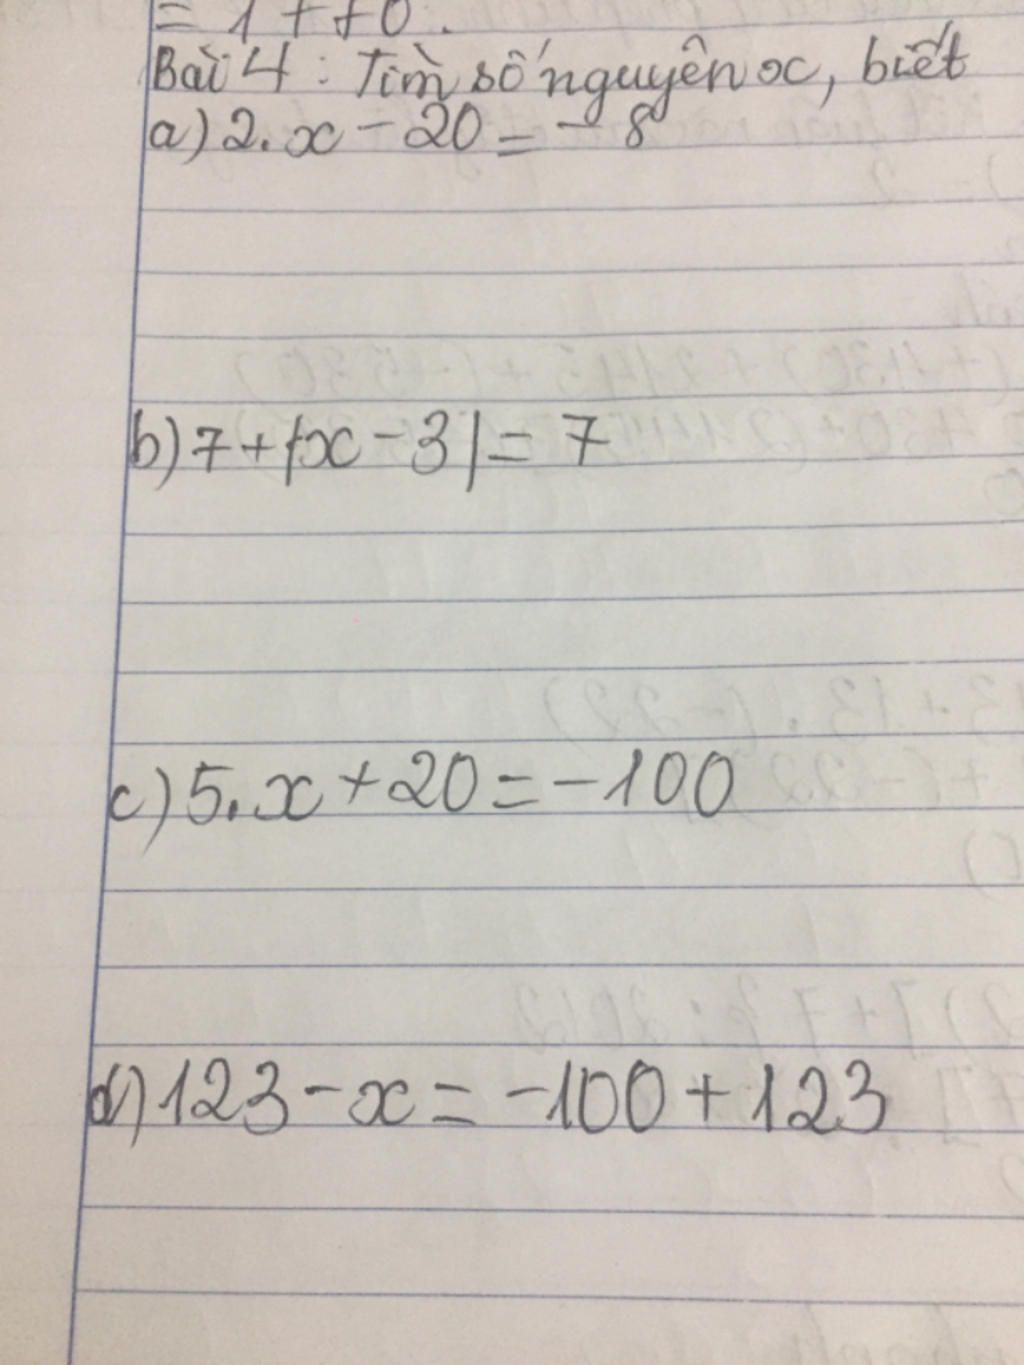 = 1 + 70.
Bài 4 : Tìm số nguyên x, biết
a) 2.x - 20 = - 8
b) 7 + |x - 3| = 7
c) 5.x + 20 = -100
d) 123 - x = -100 + 123